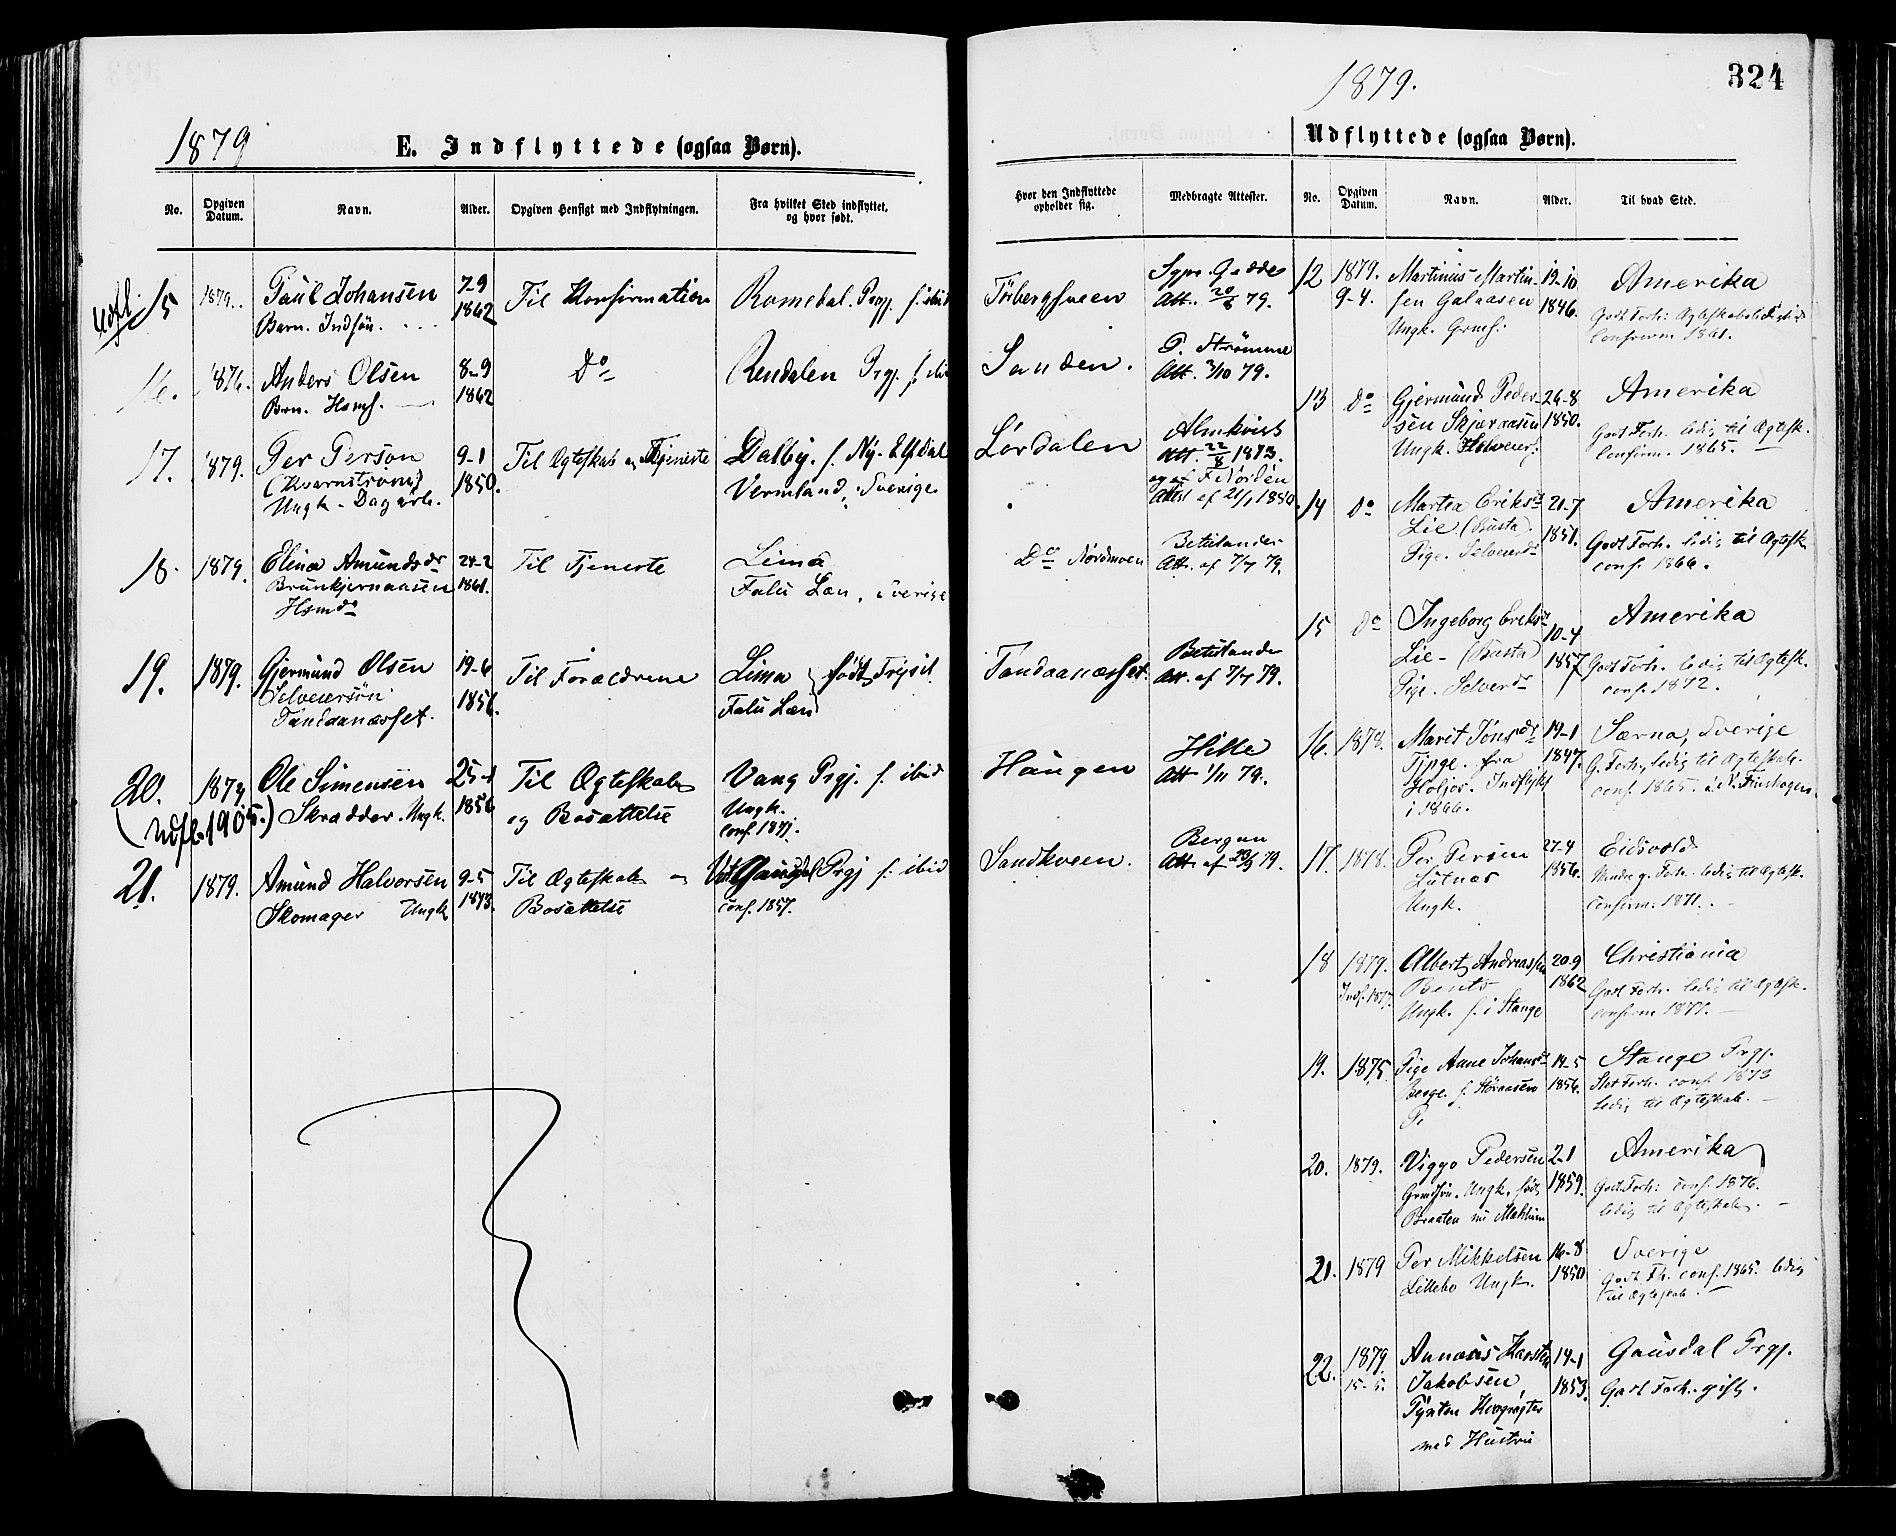 1879
E. Indflyttede (ogsaa Børn).
No.
Opgiven Datum.
Navn.
Alder.
Opgiven Hensigt med Indflytningen.
Fra hvilket Sted indflyttet, og hvor født.
Hvor den Indflyttede opholder sig.
Medbragte Attester.
Udfl. 15 1879. Paul Johansen 7-9 Til Konfirmation Romedal Prgj. f. ibid Sygpr. Gedde
Barn. Indsøn. 1862 Att. 20/8 79.
16. 1876. Anders Olsen 8-9 Do Rendalen Prgj. f. ibid Sanden. P. Strømme
Brn. Hsmf. 1862 Att. 2/10 79.
17. 1879. Per Person 9-1 Til Ægteskab og Tjeneste Dalby. f. Ny-Elfdal Lørdalen Almkvist
(Kvarnstrøm) 1850. Vermland, Sverige Att. 22/8 1873.
Ungk. Dagarb. Attest af 21/1 1850
18. 1879. Elina Amundsdr 24-2 Til Tjeneste Lima Do Nordmoen Betulander
Brunkjernaasen 1861. Falu Læn, Sverige Att. af 7/7 79.
Hsmdr
19. 1879. Gjermund Olsen 19-6 Til Forældrene Lima født Trysil Tandaanæsset Betulander
Selveiersøn 1856. Falu Læn Att. af 7/7 79.
Tandaanæsset.
20. 1879 Ole Simensen 25-1 Til Ægteskab Vang Prgj. f. ibid Haugen Hille
(Udfl. 1905.) Skrædder. Ungk. 1856 og Bosættelse Ungk. Att 1/11 79.
conf. 1871.
21. 1879. Amund Halvorsen 9-5 Til Ægteskab og Prgj f. ibid Sandkveen. Bergan
Skomager Ungk 1843. Bosættelse conf. 1857. Att. af 79.
1879.
324
Udflyttede (ogsaa Børn).
No.
Opgiven Datum.
Navn.
Alder.
Til hvad Sted.
12 1879. Martinus Martin- 19-10 Amerika
9-4. sen Galaasen 1846. Godt Forh. Ægteskabsledig
Ungk. Grmf. Confirm 1861.
13 Do Gjermund Peder- 24-8 Amerika
sen Skjæraasen 1850. Godt Forh. ledig til Ægtesk.
Ungk. Selveier. Confirm. 1865.
14 Do Martea Eriksdr 21-7 Amerika
Lie (Busta). 1851. Godt Forh. ledig til Ægtesk
Pige. Selveierdr conf. 1866.
15 Do Ingeborg Eriksdr 10-4 Amerika
Lie - (Busta) 1857 Godt Forh. ledig til Ægtesk.
Pige. Selveierdr conf. 1872.
16. 1878. Marit Jonsdr 19-1 Særna, Sverige
Pige. fra 1847. G. Forh., ledig til Ægteskab.
Holjor. Indflyttet conf. 1865.
i 1866.
17. 1878. Per Persen 27-4 Eidsvold
Lutnæs 1856. Mindre g. Forh. ledig til Ægtesk.
Ungk. Confirm. 1871.
18 1879. Albert Andreassen 20-9 Christiania
Indf. 1877. 1862 Godt Forh. ledig til Ægtesk.
Ungk. f. i Stange confirm 1877.
19. 1875. Pige Anne Johansdr 14-5 Stange Prgj.
Berge. f. 1856. Slet Forh. conf. 1873
P. ledig til Ægteskab.
20. 1879. Viggo Pedersen 2-1 Amerika
Grmfsøn. Ungk. født 1859. Godt Forh: conf. 1876.
Braaten nu ledig til Ægteskab.
21. 1879 Per Mikkelsen 16-8 Sverige
Lillebo Ungk. 1850 Godt Fh. conf. 1865. ledig
til Ægteskab.
22. 1879 Annæus Karsten 14-1 Gausdal Prgj.
15-5. Jakobsen 1853. Godt Forh. gift.
med Hustru